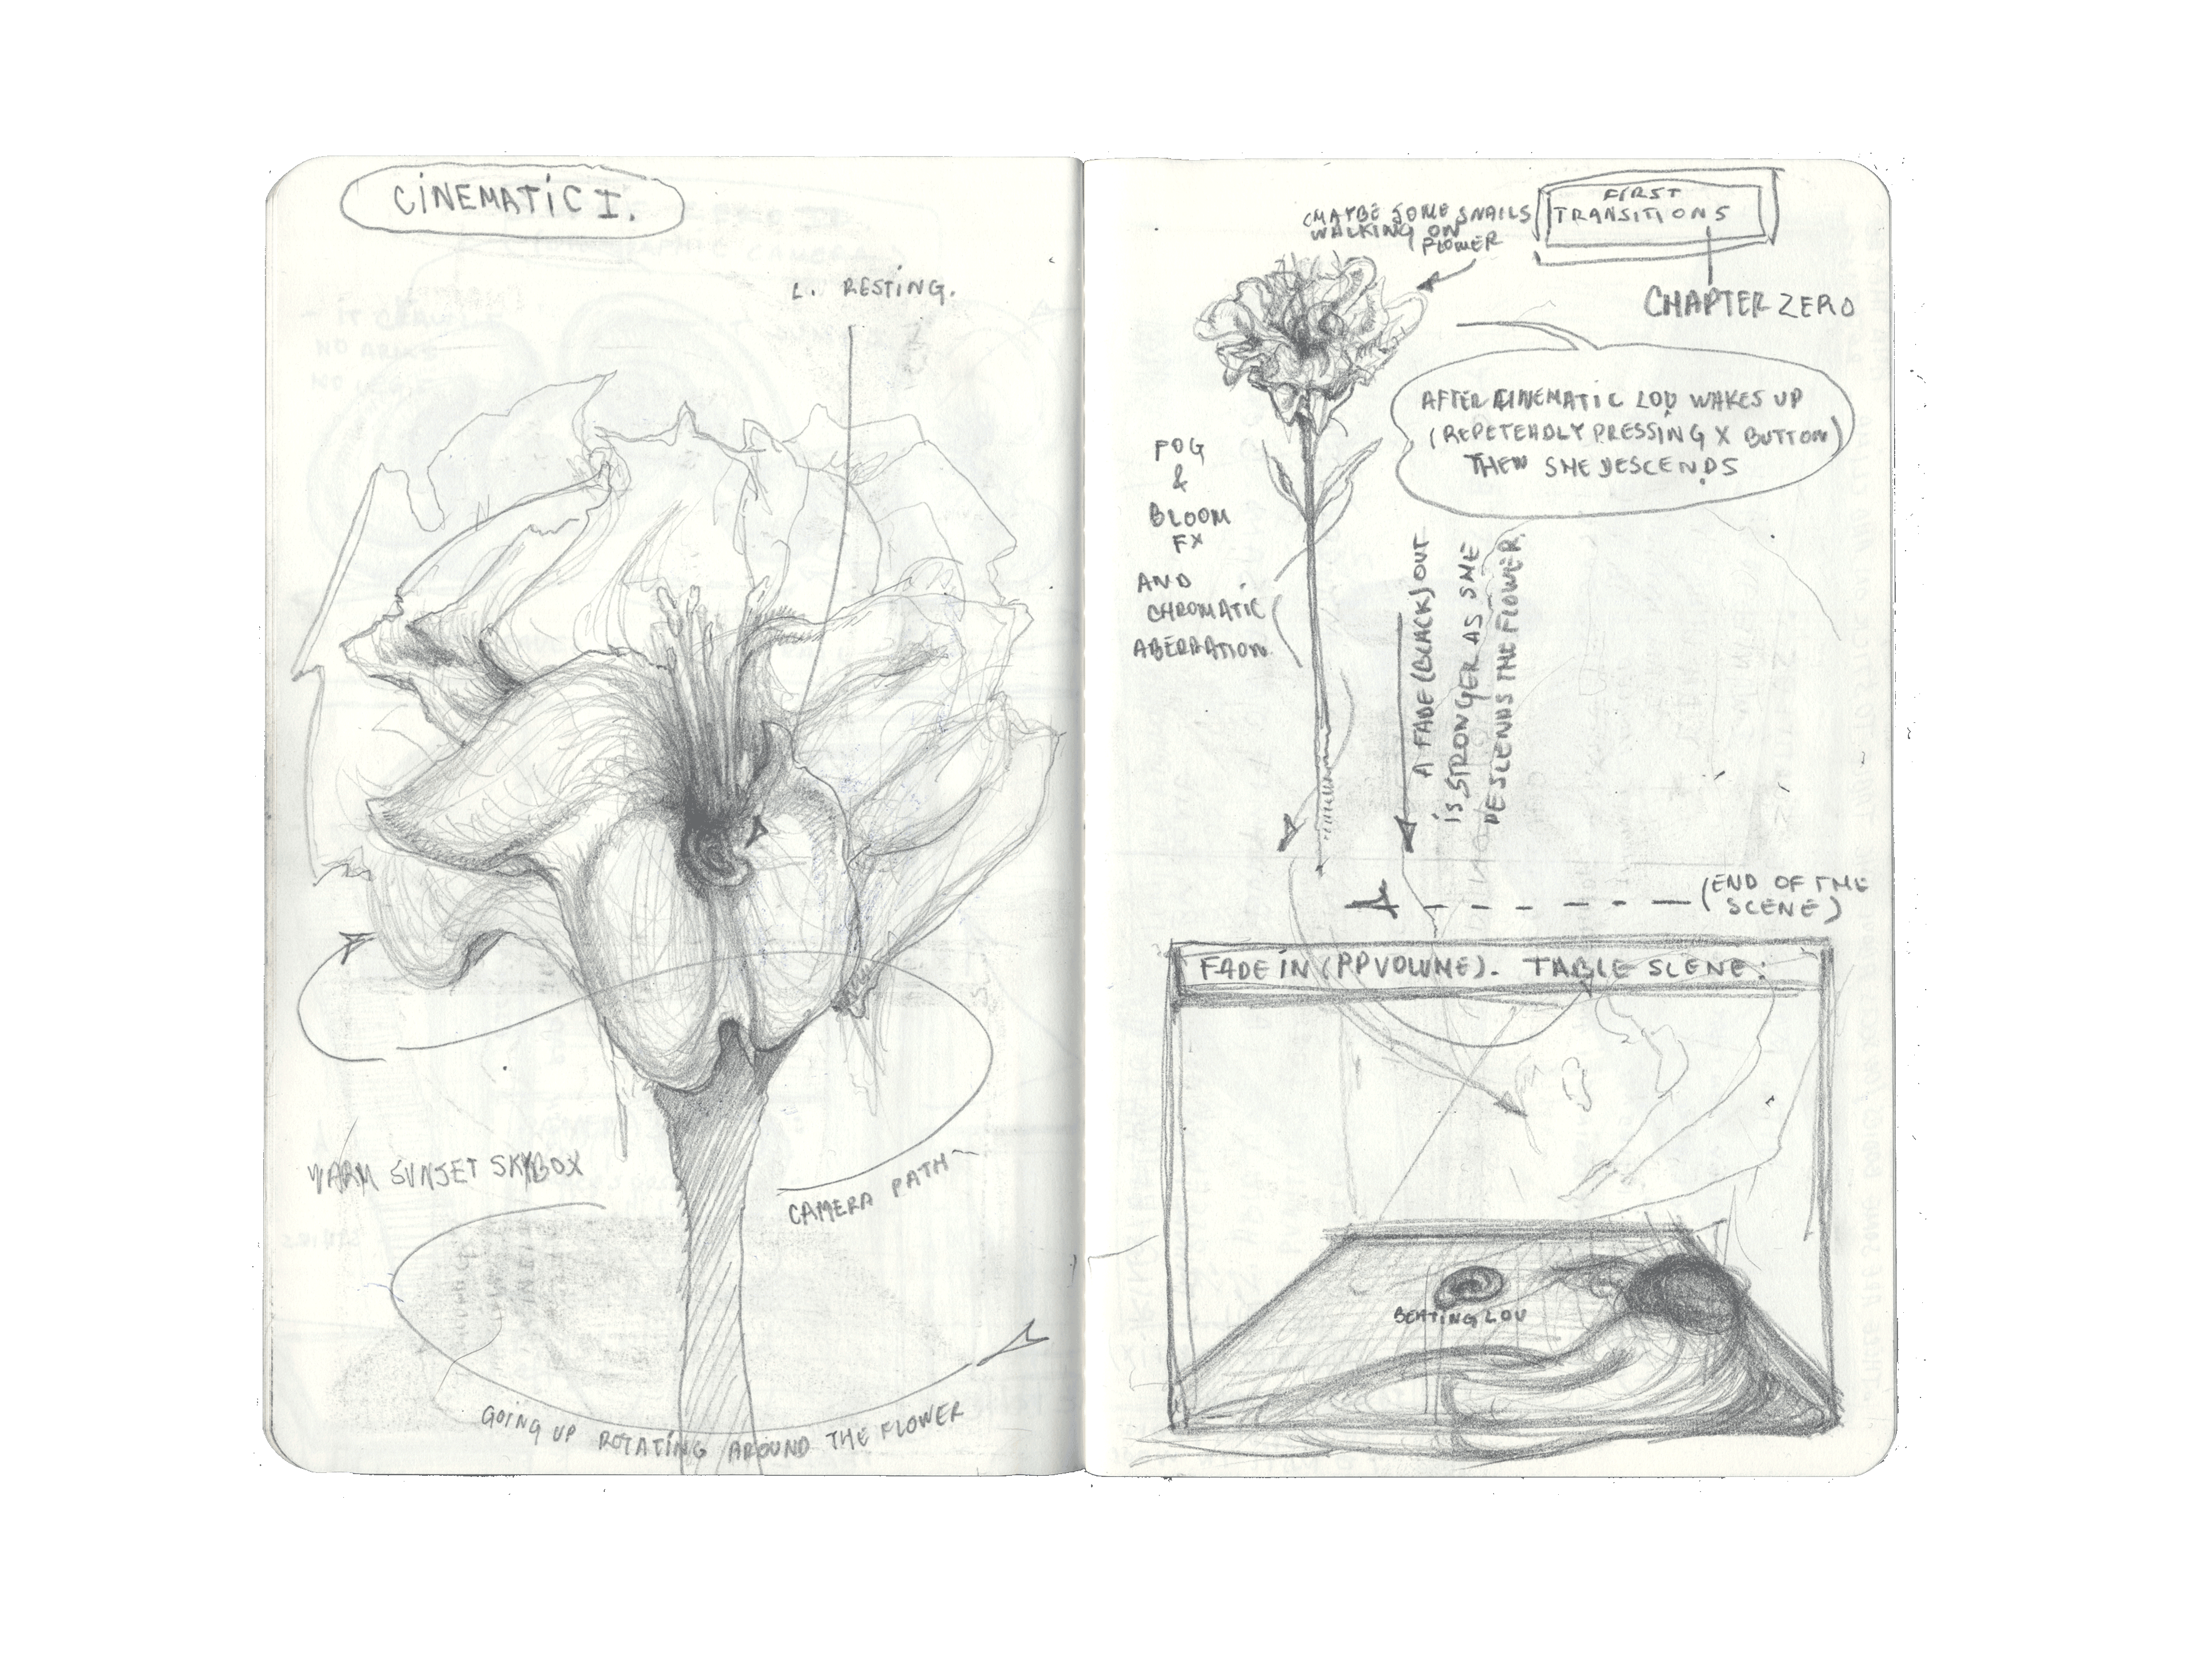 CINEMATIC I.
L. RESTING.
WARM SUNSET SKYBOX
CAMERA PATH
GOING UP ROTATING AROUND THE FLOWER
FIRST
TRANSITIONS
CHAPTER ZERO
(MAYBE SOME SNAILS
WALKING ON
FLOWER
AFTER CINEMATIC LOU WAKES UP
(REPETEADLY PRESSING X BUTTON)
THEN SHE DESCENDS
FOG
&
BLOOM
FX
AND
CHROMATIC
ABERRATION
A FADE (BLACK) OUT
IS STRONGER AS SHE
DESCENDS THE FLOWER.
(END OF THE
SCENE)
FADE IN (PP VOLUME). TABLE SCENE:
BEATING LOU